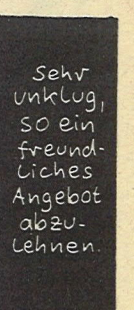 Sehr
unklug,
so ein
freund-
liches
Angebot
abzu-
lehnen.